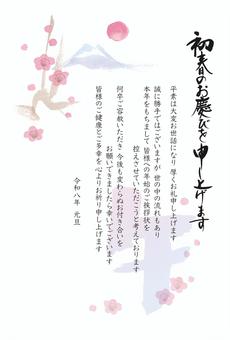 初春のお慶びを申し上げます
平素は大変お世話になり 厚くお礼申し上げます
誠に勝手ではございますが 世の中の流れもあり
本年をもちまして 皆様への年始のご挨拶状を
控えさせていただこうと考えております
何卒ご容赦いただき 今後も変わらぬお付き合いを
お願いできましたら幸いでございます
皆様のご健康とご多幸を 心よりお祈り申し上げます
令和八年 元旦